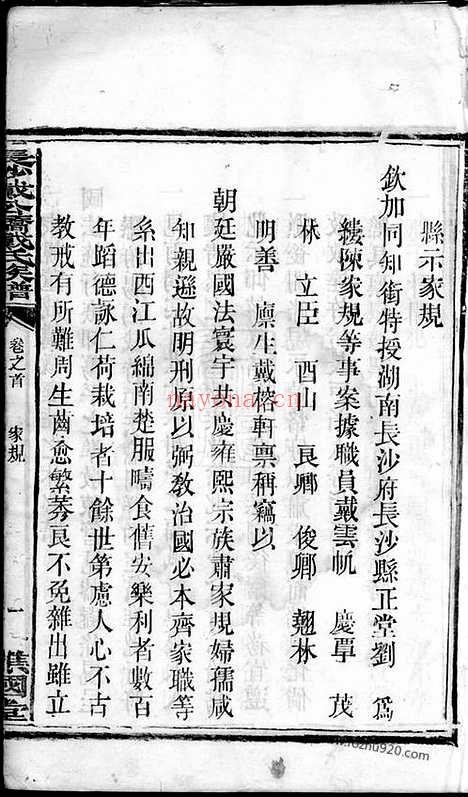 縣示家規
欽加同知銜特授湖南長沙府長沙縣正堂劉 爲
縷陳家規等事案據職員戴雲帆 慶覃 茂
林 立臣 酉山 良卿 俊卿 翹林
明善 廪生戴榕軒禀稱竊以
朝廷嚴國法寰宇共慶雍熙宗族肅家規婦孺咸
知親遜故明刑原以弼敎治國必本齊家職等
系出西江瓜綿南楚服疇食舊安樂利者數百
年蹈德詠仁荷栽培者十餘世第慮人心不古
敎戒有所難周生齒愈繁莠良不免雜出雖立
戴氏家譜
卷之首 家規
一
譙國堂
nayona.cn